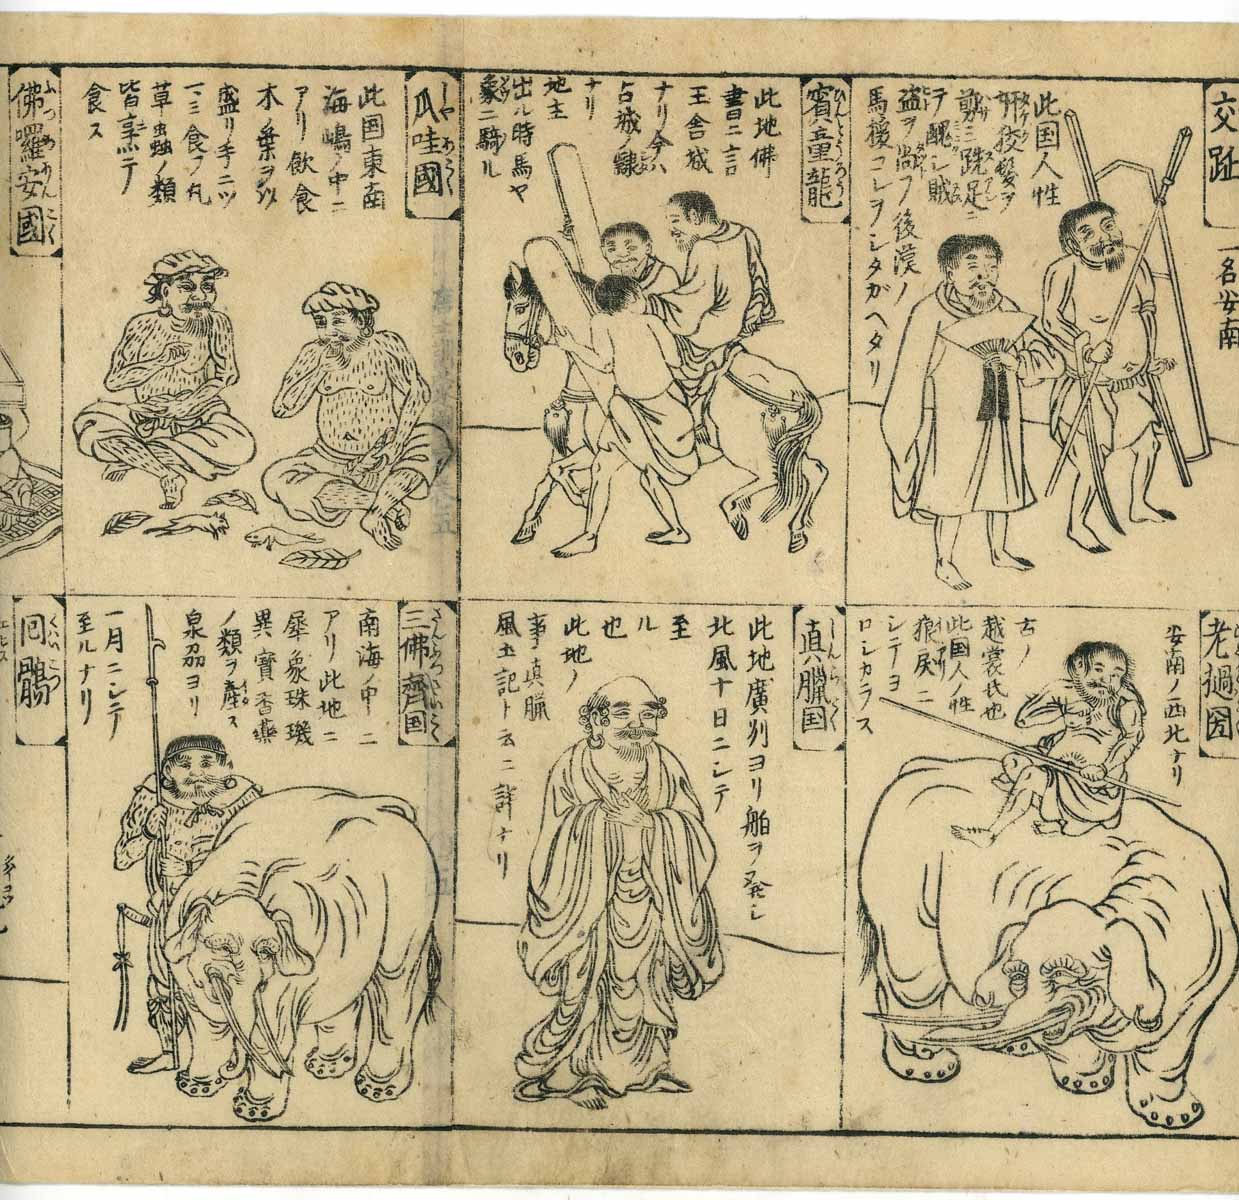 交趾
一名安南
此国人性
ヲ醜シ賊
盗ヲ尚フ後漢ノ
馬援コレヲシタガヘタリ
賓童龍
此地佛
書ニ言
王舎城
ナリ今ハ
占城ノ隷
ナリ
地主
出ル時馬ヤ
象ニ騎ル
爪哇國
此国東南
海嶋ノ中ニ
アリ飲食
木ノ葉ヲ以
盛リ手ニツ
食フ凡
草虫ノ類
皆烹テ
食ス
佛囉安國
老撾国
安南ノ西北ナリ
古ノ
越裳氏也
此国人ノ性
狼戻ニ
シテヨ
ロシカラス
真臘国
しんらうこく
此地廣州ヨリ舶ヲ発シ
北風十日ニシテ
至
ル
也
此地ノ
事真臘
風土記ト云ニ詳ナリ
三佛齊国
南海ノ中ニ
アリ此地ニ
犀象珠璣
異寶香藥
ノ類ヲ産ス
泉刕ヨリ
一月ニシテ
至ルナリ
回鶻